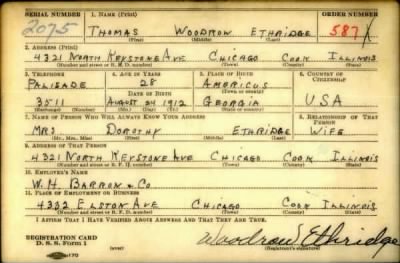 SERIAL NUMBER 1. NAME (Print) ORDER NUMBER
2075 THOMAS WOODROW ETHRIDGE 587
(First) (Middle) (Last)
2. ADDRESS (Print)
4321 NORTH KEYSTONE AVE CHICAGO COOK ILLINOIS
(Number and street or R. F. D. number) (Town) (County) (State)
3. TELEPHONE 4. AGE IN YEARS 5. PLACE OF BIRTH 6. COUNTRY OF CITIZENSHIP
PALISADE 28 AMERICUS
DATE OF BIRTH (Town or county)
3511 AUGUST 24 1912 GEORGIA USA
(Mo.) (Day) (Yr.) (State or country)
7. NAME OF PERSON WHO WILL ALWAYS KNOW YOUR ADDRESS 8. RELATIONSHIP OF THAT PERSON
MRS DOROTHY ETHRIDGE WIFE
(Mr., Mrs., Miss) (First) (Middle) (Last)
9. ADDRESS OF THAT PERSON
4321 NORTH KEYSTONE AVE CHICAGO COOK ILLINOIS
(Number and street or R. F. D. number) (Town) (County) (State)
10. EMPLOYER'S NAME
W. H. BARRON & CO
11. PLACE OF EMPLOYMENT OR BUSINESS
4332 ELSTON AVE CHICAGO COOK ILLINOIS
(Number and street or R. F. D. number) (Town) (County) (State)
I AFFIRM THAT I HAVE VERIFIED ABOVE ANSWERS AND THAT THEY ARE TRUE.
REGISTRATION CARD
D. S. S. Form 1 Woodrow Ethridge
(Registrant's signature)